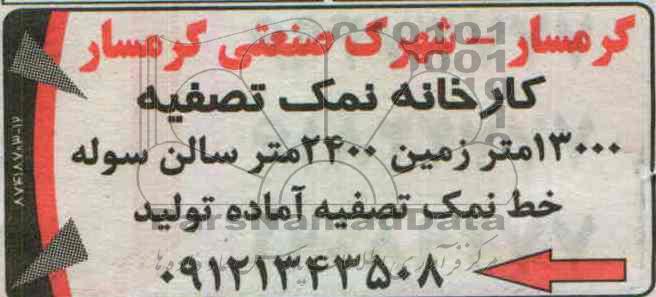 گرمسار - شهرک صنعتی گرمسار
کارخانه نمک تصفیه
۱۳۰۰۰متر زمین ۲۴۰۰متر سالن سوله
خط نمک تصفیه آماده تولید
۰۹۱۲۱۳۴۳۵۰۸
ParsNamadData